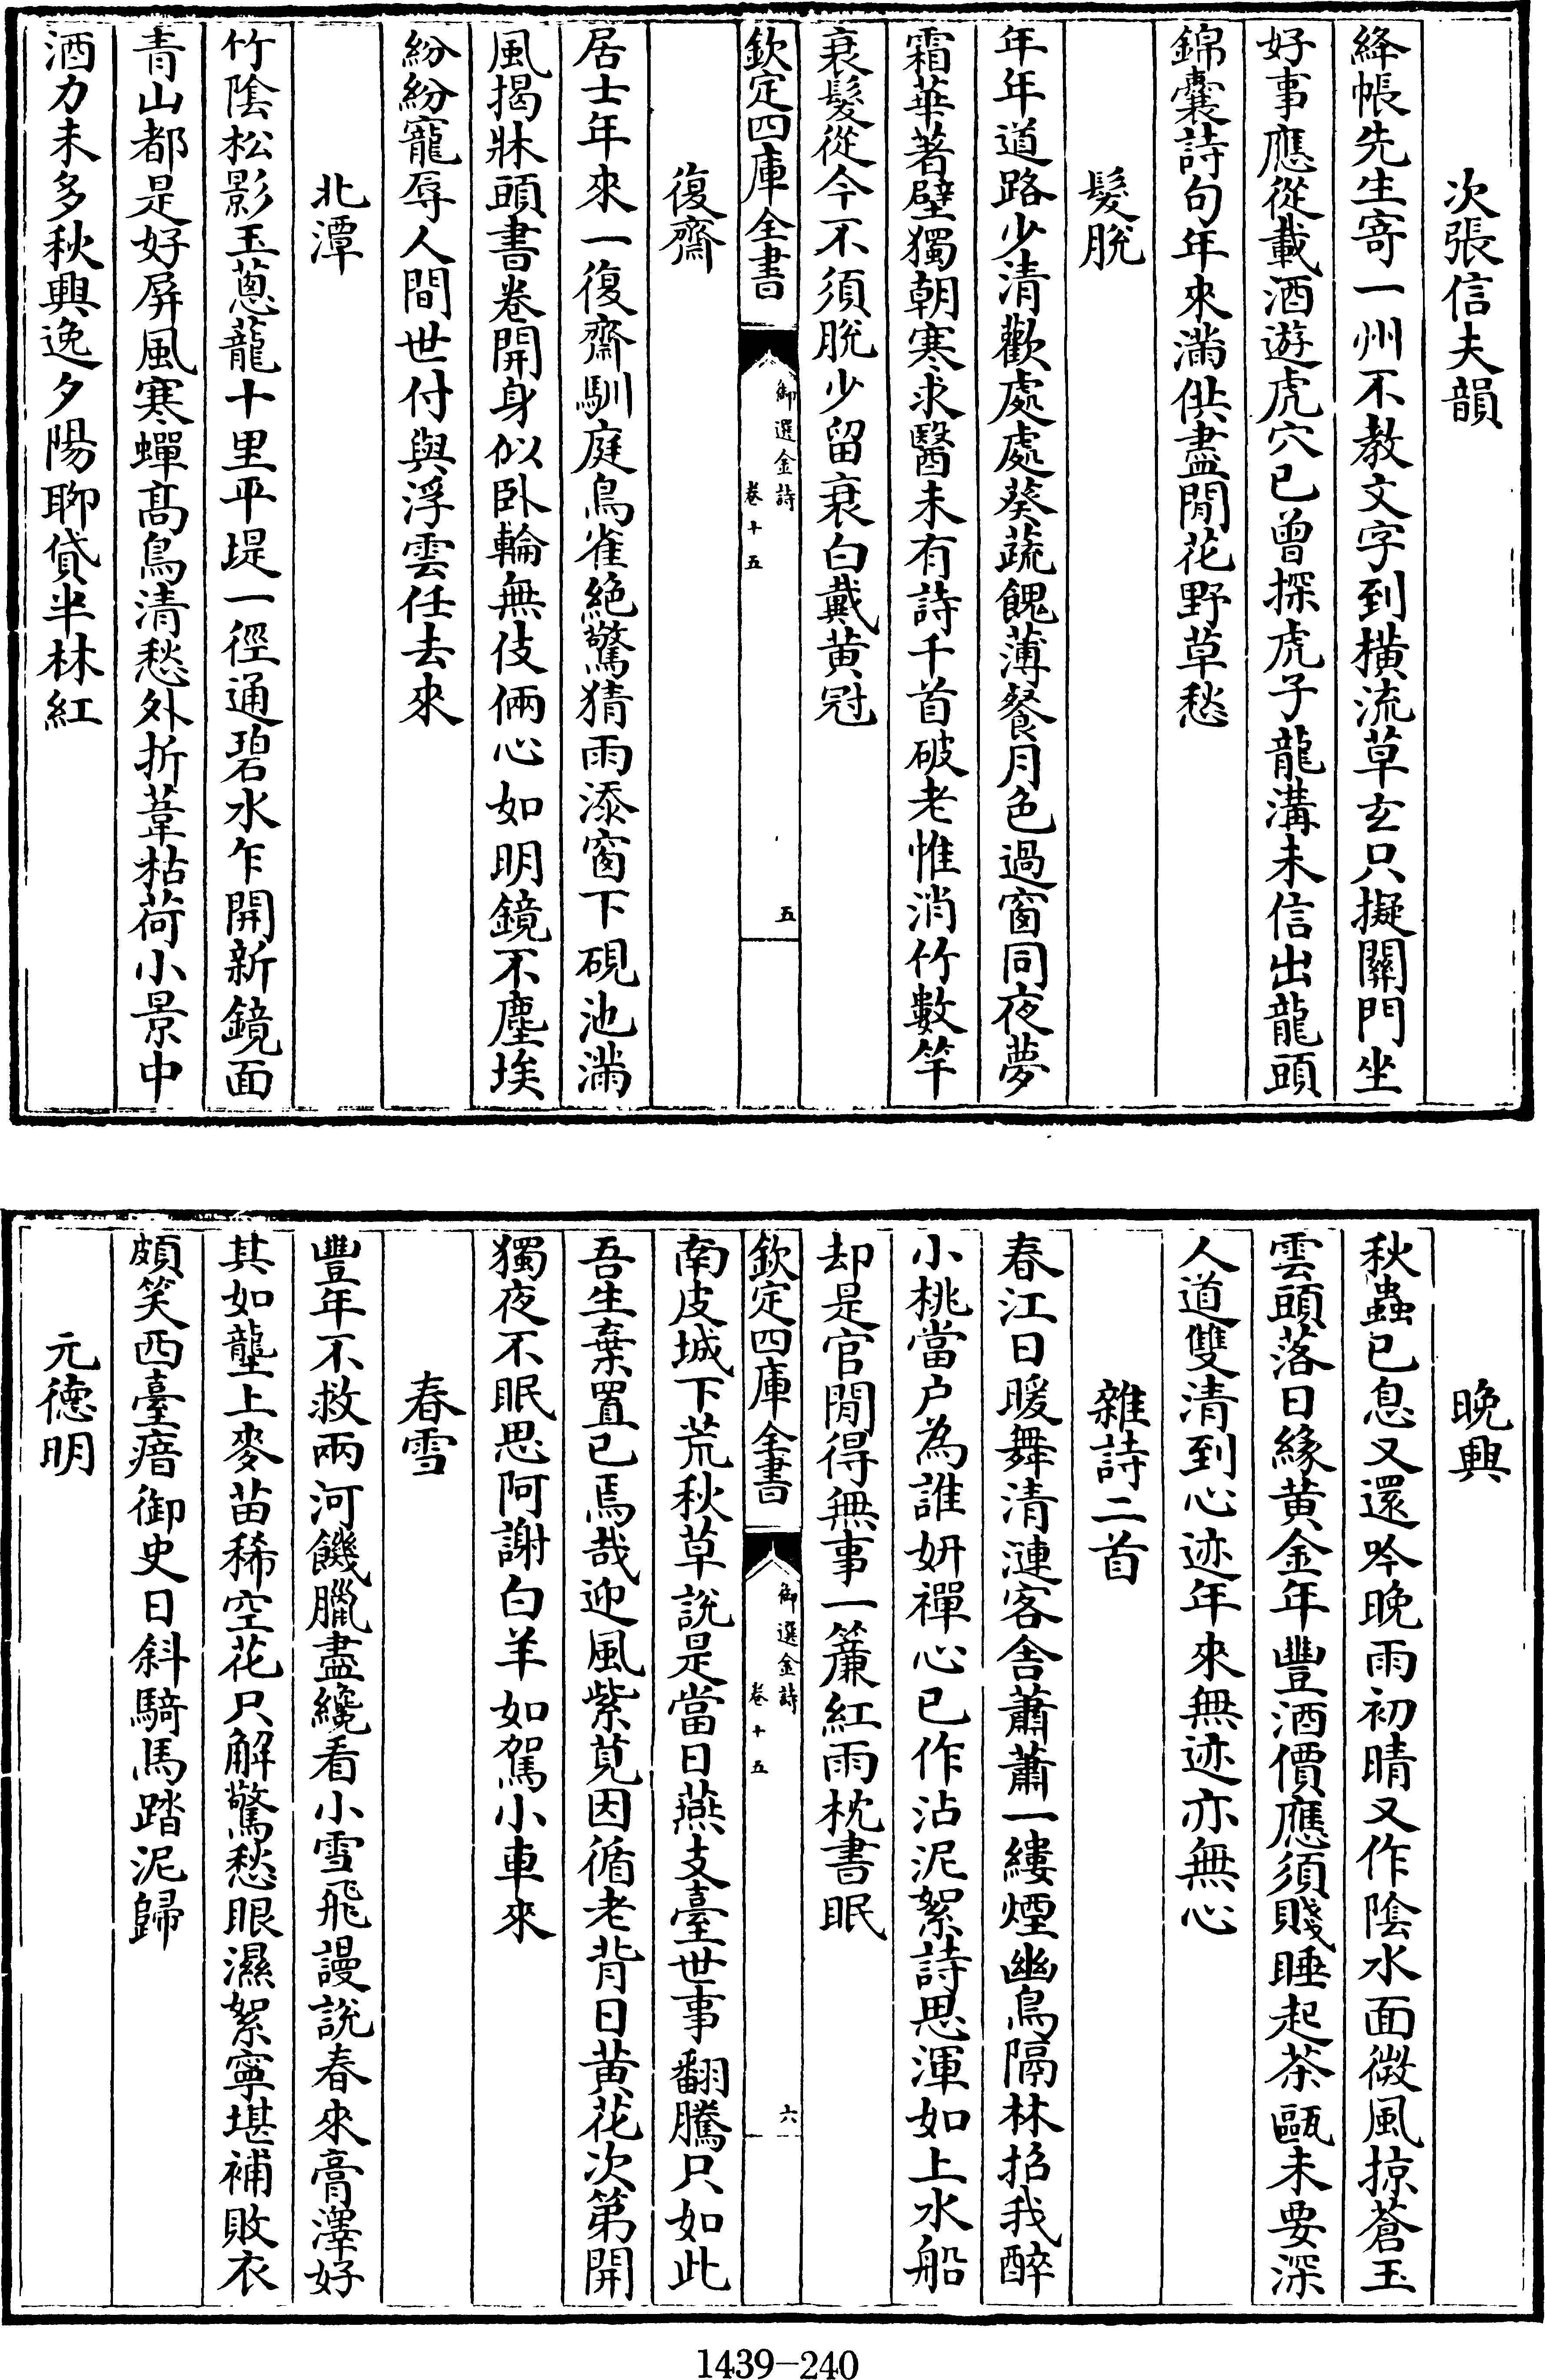 次張信夫韻
絳帳先生寄一州不教文字到橫流草玄只擬關門坐
好事應從載酒遊虎穴已曾探虎子龍溝未信出龍頭
錦囊詩句年來滿供盡閒花野草愁
髮脫
年年道路少清歡處處葵蔬餽薄餐月色過窗同夜夢
霜華著壁獨朝寒求醫未有詩千首破老惟消竹數竿
衰髮從今不須脫少留衰白戴黄冠
欽定四庫全書
御選金詩
卷十五
五
復齋
居士年來一復齋馴庭鳥雀絶驚猜雨添窗下硯池滿
風揭牀頭書卷開身似卧輪無伎倆心如明鏡不塵埃
紛紛寵辱人間世付與浮雲任去來
北潭
竹陰松影玉蔥蘢十里平堤一徑通碧水乍開新鏡面
青山都是好屏風寒蟬髙鳥清愁外折葦枯荷小景中
酒力未多秋興逸夕陽聊貸半林紅
晚興
秋蟲已息又還吟晚雨初晴又作陰水面微風掠蒼玉
雲頭落日緣黄金年豐酒價應須賤睡起茶甌未要深
人道雙清到心迹年來無迹亦無心
雜詩二首
春江日暖舞清漣客舍蕭蕭一縷煙幽鳥隔林招我醉
小桃當户為誰妍禪心已作沾泥絮詩思渾如上水船
却是官閒得無事一簾紅雨枕書眠
欽定四庫全書
御選金詩
卷十五
六
南皮城下荒秋草説是當日燕支臺世事翻騰只如此
吾生棄置已焉哉迎風紫莧因循老背日黄花次第開
獨夜不眠思阿謝白羊如駕小車來
春雪
豐年不救兩河饑臘盡纔看小雪飛謾説春來膏澤好
其如壟上麥苗稀空花只解驚愁眼濕絮寧堪補敗衣
頗笑西臺瘖御史日斜騎馬踏泥歸
元德明
1439-240